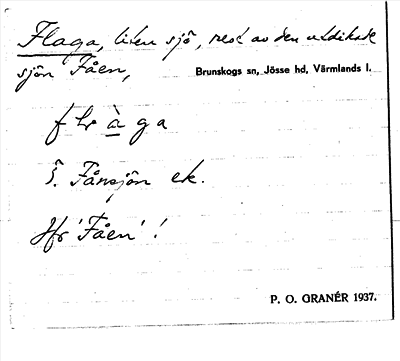 Flaga, liten sjö, rest av den utdikade
sjön Fåen,
Brunskogs sn, Jösse hd, Värmlands l.
flràga
S. Fånsjön ek.
Jfr 'Fåen'!
P. O. GRANÉR 1937.